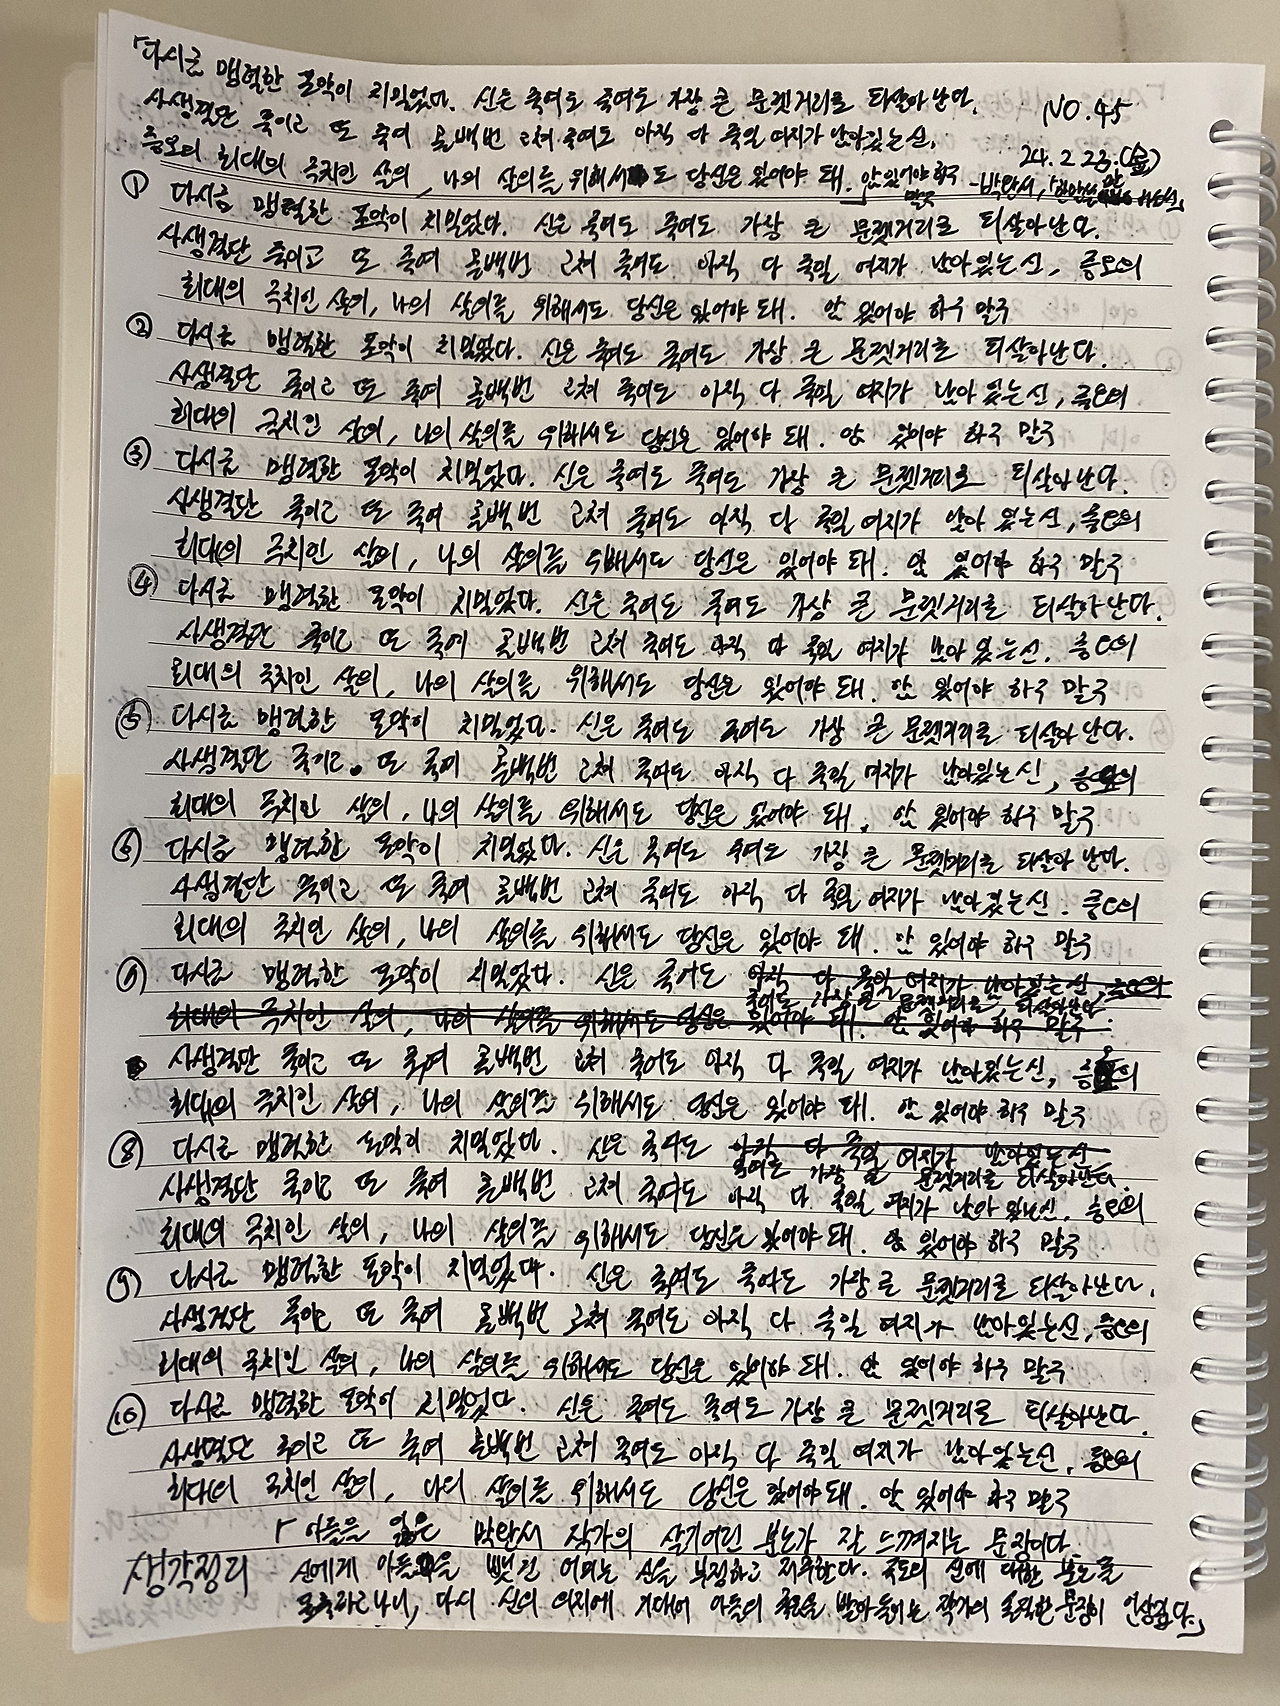 「다시금 맹렬한 포악이 치밀었다. 신은 죽여도 죽여도 가장 큰 문젯거리로 되살아난다.
NO.45
사생결단 죽이고 또 죽여 골백번 고쳐 죽여도 아직 다 죽일 여지가 남아있는 신,
24.2.23.(金)
증오의 최대의 극치인 살의, 나의 살의를 위해서도 당신은 있어야 돼. 안 있어야 하구 말구」
-박완서, 「한 말씀만 하소서」
① 다시금 맹렬한 포악이 치밀었다. 신은 죽여도 죽여도 가장 큰 문젯거리로 되살아난다.
사생결단 죽이고 또 죽여 골백번 고쳐 죽여도 아직 다 죽일 여지가 남아있는 신, 증오의
최대의 극치인 살의, 나의 살의를 위해서도 당신은 있어야 돼. 안 있어야 하구 말구
② 다시금 맹렬한 포악이 치밀었다. 신은 죽여도 죽여도 가장 큰 문젯거리로 되살아난다.
사생결단 죽이고 또 죽여 골백번 고쳐 죽여도 아직 다 죽일 여지가 남아 있는 신, 증오의
최대의 극치인 살의, 나의 살의를 위해서도 당신은 있어야 돼. 안 있어야 하구 말구
③ 다시금 맹렬한 포악이 치밀었다. 신은 죽여도 죽여도 가장 큰 문젯거리로 되살아난다.
사생결단 죽이고 또 죽여 골백번 고쳐 죽여도 아직 다 죽일 여지가 남아 있는 신, 증오의
최대의 극치인 살의, 나의 살의를 위해서도 당신은 있어야 돼. 안 있어야 하구 말구
④ 다시금 맹렬한 포악이 치밀었다. 신은 죽여도 죽여도 가장 큰 문젯거리로 되살아난다.
사생결단 죽이고 또 죽여 골백번 고쳐 죽여도 아직 다 죽일 여지가 남아 있는 신. 증오의
최대의 극치인 살의, 나의 살의를 위해서도 당신은 있어야 돼. 안 있어야 하구 말구
⑤ 다시금 맹렬한 포악이 치밀었다. 신은 죽여도 죽여도 가장 큰 문젯거리로 되살아난다.
사생결단 죽이고. 또 죽여 골백번 고쳐 죽여도 아직 다 죽일 여지가 남아있는 신, 증오의
최대의 극치인 살의, 나의 살의를 위해서도 당신은 있어야 돼, 안 있어야 하구 말구
⑥ 다시금 맹렬한 포악이 치밀었다. 신은 죽여도 죽여도 가장 큰 문젯거리로 되살아난다.
사생결단 죽이고 또 죽여 골백번 고쳐 죽여도 아직 다 죽일 여지가 남아있는 신. 증오의
최대의 극치인 살의, 나의 살의를 위해서도 당신은 있어야 돼. 안 있어야 하구 말구
⑥ 다시금 맹렬한 포악이 치밀었다. 신은 죽여도 아직 다 죽일 여지가 남아있는 신, 증오의
죽여도 가장 큰 문젯거리로 되살아난다.
최대의 극치인 살의, 나의 살의를 위해서도 당신은 있어야 돼. 안 있어야 하구 말구.
사생결단 죽이고 또 죽여 골백번 고쳐 죽여도 아직 다 죽일 여지가 남아있는 신, 증오의
최대의 극치인 살의, 나의 살의를 위해서도 당신은 있어야 돼. 안 있어야 하구 말구
⑧ 다시금 맹렬한 포악이 치밀었다. 신은 죽여도 아직 다 죽일 여지가 남아있는 신
죽여도 가장 큰 문젯거리로 되살아난다.
사생결단 죽이고 또 죽여 골백번 고쳐 죽여도 아직 다 죽일 여지가 남아 있는신, 증오의
최대의 극치인 살의, 나의 살의를 위해서도 당신은 있어야 돼. 안 있어야 하구 말구
⑨ 다시금 맹렬한 포악이 치밀었다. 신은 죽여도 죽여도 가장 큰 문젯거리로 되살아난다.
사생결단 죽이고 또 죽여 골백번 고쳐 죽여도 아직 다 죽일 여지가 남아있는신, 증오의
최대의 극치인 살의, 나의 살의를 위해서도 당신은 있어야 돼. 안 있어야 하구 말구
⑩ 다시금 맹렬한 포악이 치밀었다. 신은 죽여도 죽여도 가장 큰 문젯거리로 되살아난다.
사생결단 죽이고 또 죽여 골백번 고쳐 죽여도 아직 다 죽일 여지가 남아있는신, 증오의
최대의 극치인 살의, 나의 살의를 위해서도 당신은 있어야 돼. 안 있어야 하구 말구
「아들을 잃은 박완서 작가의 살기어린 분노가 잘 느껴지는 문장이다.
생각정리 신에게 아들을 뺏긴 어미는 신을 부정하고 저주한다. 극도의 신에 대한 분노를
나니, 다시 신의 의지에 기대어 아들의 죽음을 받아들이는 작가의 솔직한 문장이 인상깊다.」